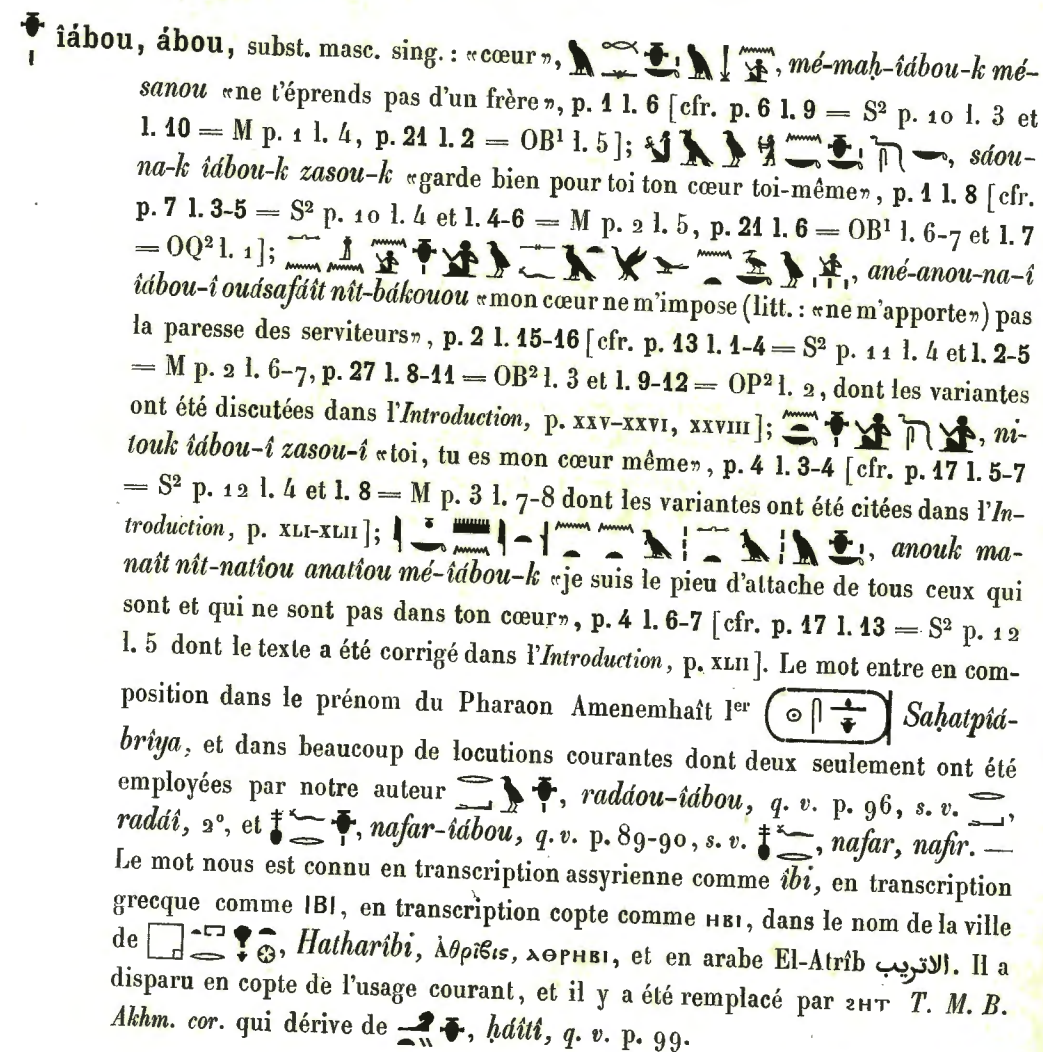 𓄣𓏤 îábou, ábou, subst. masc. sing. : «cœur», , mé-maḥ-îábou-k mé-
sanou «ne t'éprends pas d'un frère», p. 1 l. 6 [cfr. p. 6 l. 9 = S² p. 10 l. 3 et
l. 10 = M p. 1 l. 4, p. 21 l. 2 = OB¹ l. 5]; , sáou-
na-k îábou-k zasou-k «garde bien pour toi ton cœur toi-même», p. 1 l. 8 [cfr.
p. 7 l. 3-5 = S² p. 10 l. 4 et l. 4-6 = M p. 2 l. 5, p. 21 l. 6 = OB¹ l. 6-7 et l. 7
= OQ² l. 1]; , ané-anou-na-î
îábou-î ouásafáît nît-bákouou «mon cœur ne m'impose (litt. : «ne m'apporte») pas
la paresse des serviteurs», p. 2 l. 15-16 [cfr. p. 13 l. 1-4 = S² p. 11 l. 4 et l. 2-5
= M p. 2 l. 6-7, p. 27 l. 8-11 = OB² l. 3 et l. 9-12 = OP² l. 2, dont les variantes
ont été discutées dans l'Introduction, p. XXV-XXVI, XXVIII]; , ni-
touk îábou-î zasou-î «toi, tu es mon cœur même», p. 4 l. 3-4 [cfr. p. 17 l. 5-7
= S² p. 12 l. 4 et l. 8 = M p. 3 l. 7-8 dont les variantes ont été citées dans l'In-
troduction, p. XLI-XLII]; , anouk ma-
naît nît-natîou anatîou mé-îábou-k «je suis le pieu d'attache de tous ceux qui
sont et qui ne sont pas dans ton cœur», p. 4 l. 6-7 [cfr. p. 17 l. 13 = S² p. 12
l. 5 dont le texte a été corrigé dans l'Introduction, p. XLII]. Le mot entre en com-
position dans le prénom du Pharaon Amenemhaît Iᵉʳ Saḥatpîá-
brîya, et dans beaucoup de locutions courantes dont deux seulement ont été
employées par notre auteur , radáou-îábou, q. v. p. 96, s. v. ,
radáî, 2°, et , nafar-îábou, q. v. p. 89-90, s. v. , nafar, nafir. —
Le mot nous est connu en transcription assyrienne comme îbi, en transcription
grecque comme ΙΒΙ, en transcription copte comme ⲏⲃⲓ, dans le nom de la ville
de , Hatharîbi, Ἀθρῖβις, ⲁⲑⲣⲏⲃⲓ, et en arabe El-Atrîb الاتريب. Il a
disparu en copte de l'usage courant, et il y a été remplacé par ϩⲏⲧ T. M. B.
Akhm. cor. qui dérive de , ḥáîtî, q. v. p. 99.